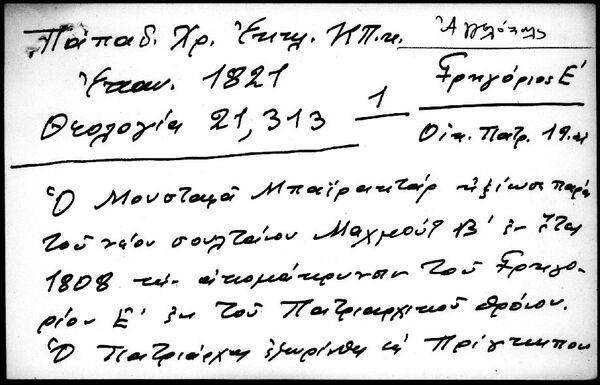 Παπαδ. Χρ. Ἐκκλ. Κ.Π.κ.
Ἐπαν. 1821
Θεολογία 21,313
1
Γρηγόριος Ε΄
Οἰκ. Πατρ. 19.
Ὁ Μουσταφᾶ Μπαϊρακτάρ ἠξίωσε παρὰ
τοῦ νέου σουλτάνου Μαχμούτ Β΄ ἐν ἔτει
1808 τὴν ἀπομάκρυνσιν τοῦ Γρηγο-
ρίου Ε΄ ἐκ τοῦ Πατριαρχικοῦ θρόνου.
Ὁ Πατριάρχης ἐξωρίσθη εἰς Πρίγκηπον